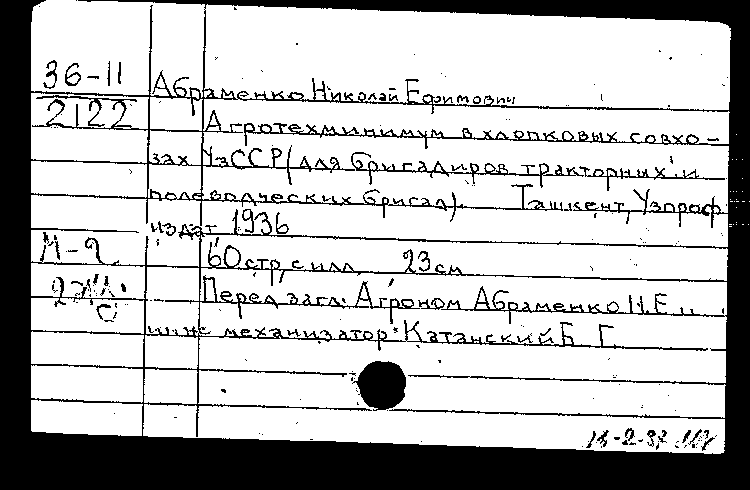 36-11
2122
Абраменко Николай Ефимович
Агротехминимум в хлопковых совхо-
зах УзССР (для бригадиров тракторных и
полеводческих бригад). Ташкент, Узпроф
издат 1936
М-9
60 стр, с илл. 23 см
Перед загл: Агроном Абраменко Н.Е. и
инж механизатор Катанский Б Г.